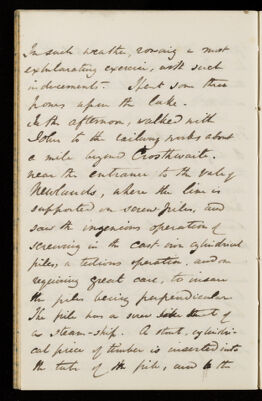 In such weather, rowing a most
exhilarating exercise, with such
inducements. Spent some three
hours upon the lake.
In the afternoon, walked with
John to the railway works about
a mile beyond Crosthwaite.
near the entrance to the valley
Newlands, where the line is
supported on screw piles, and
saw the ingenious operation of
screwing in the cast iron cylindrical
piles, a tedious operation, and one
requiring great care, to insure
the piles being perpendicular.
The pile has a screw like that of
a steam-ship. A stout, cylindri-
cal piece of timber is inserted into
the tube of the pile, and to the